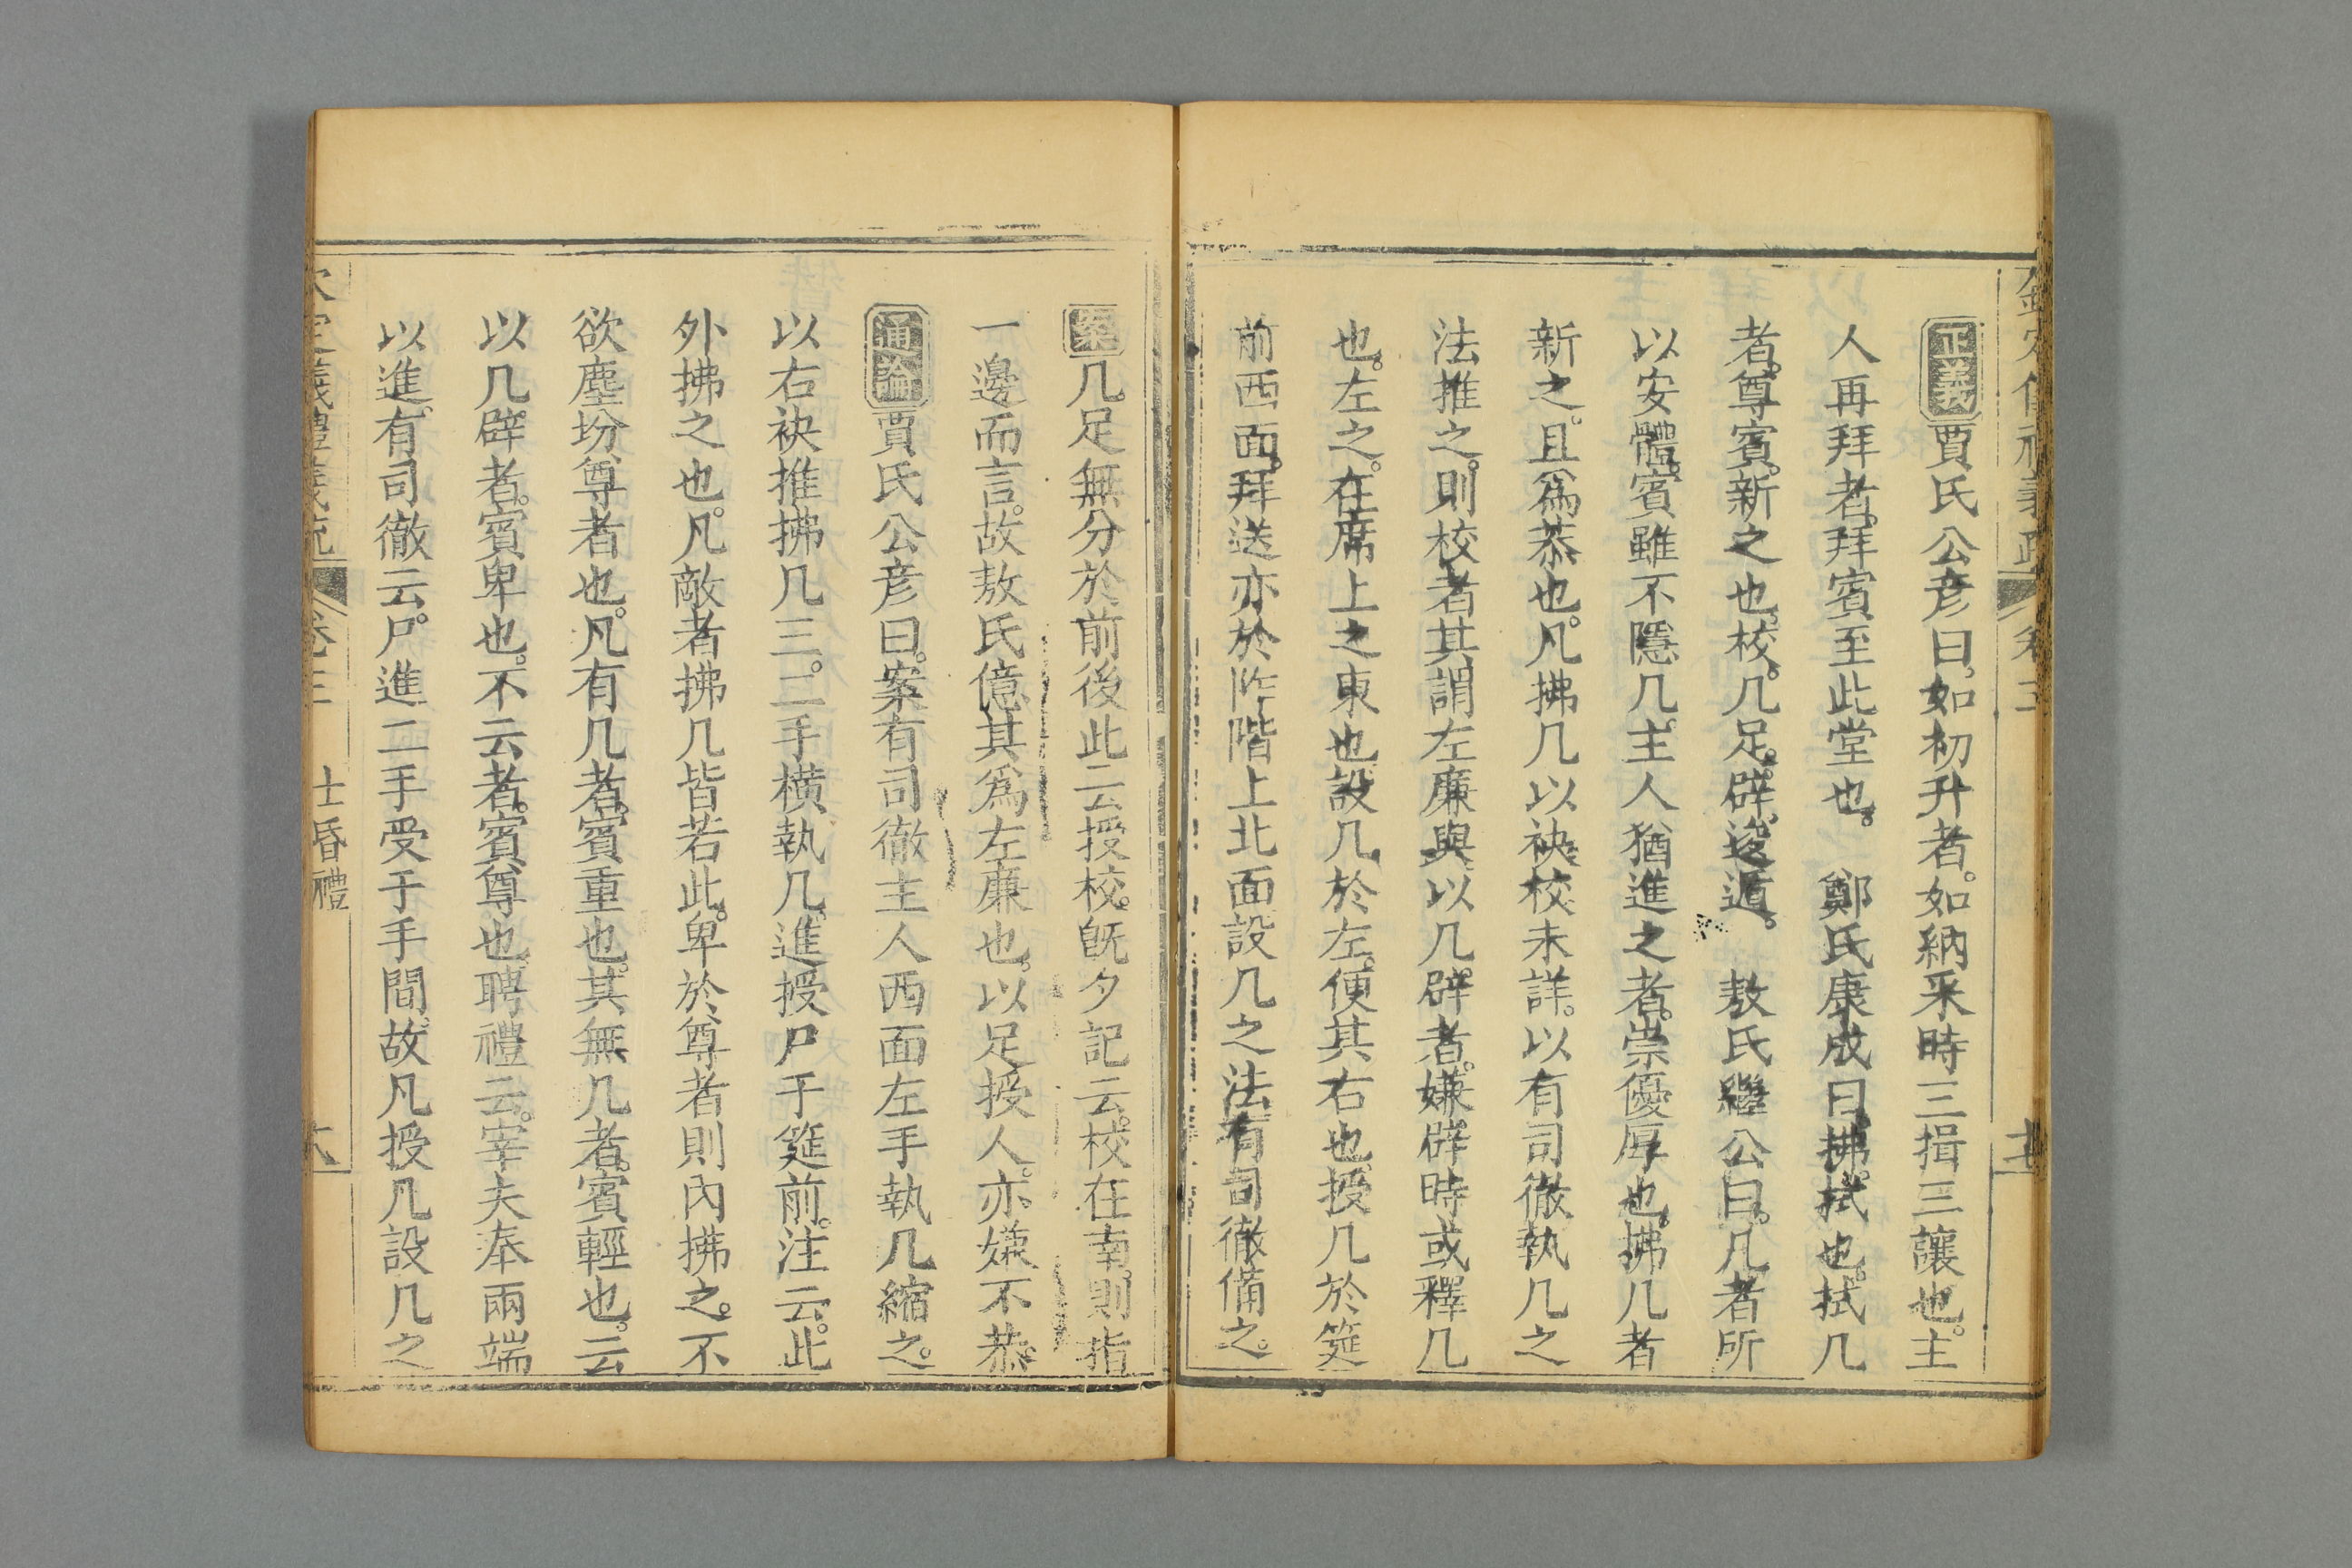 正義賈氏公彦曰如初升者。如納采時三揖三讓也。主
人再拜者。拜賓至此堂也。 鄭氏康成曰。拂。拭也。拭几
者。尊賓。新之也。校。几足。辟。逡遁。 敖氏繼公曰。几者所
以安體。賓雖不隱几。主人猶進之者。崇優厚也。拂几者
新之。且爲恭也。凡拂几以袂校未詳。以有司徹執几之
法推之。則校者其謂左廉與以几辟者。嫌辟時或釋几
也。左之。在席上之東也。設几於左。便其右也。授几於筵
前西面。拜送亦於阼階上北面設几之法有司徹備之。
案几足無分於前後此云授校。旣夕記云。校在南。則指
一邊而言。故敖氏億其爲左廉也。以足授人。亦嫌不恭。
通論賈氏公彦曰。案有司徹主人西面左手執几縮之。
以右袂推拂几三。二手橫執几。進授尸于筵前。注云。此
外拂之也。凡敵者拂几皆若此。卑於尊者則內拂之。不
欲塵坋尊者也。凡有几者。賓重也。其無几者。賓輕也。云
以几辟者。賓卑也。不云者。賓尊也。聘禮云。宰夫奉兩端
以進。有司徹云。尸進二手受于手間。故凡授几設几之
卷三 士昏禮